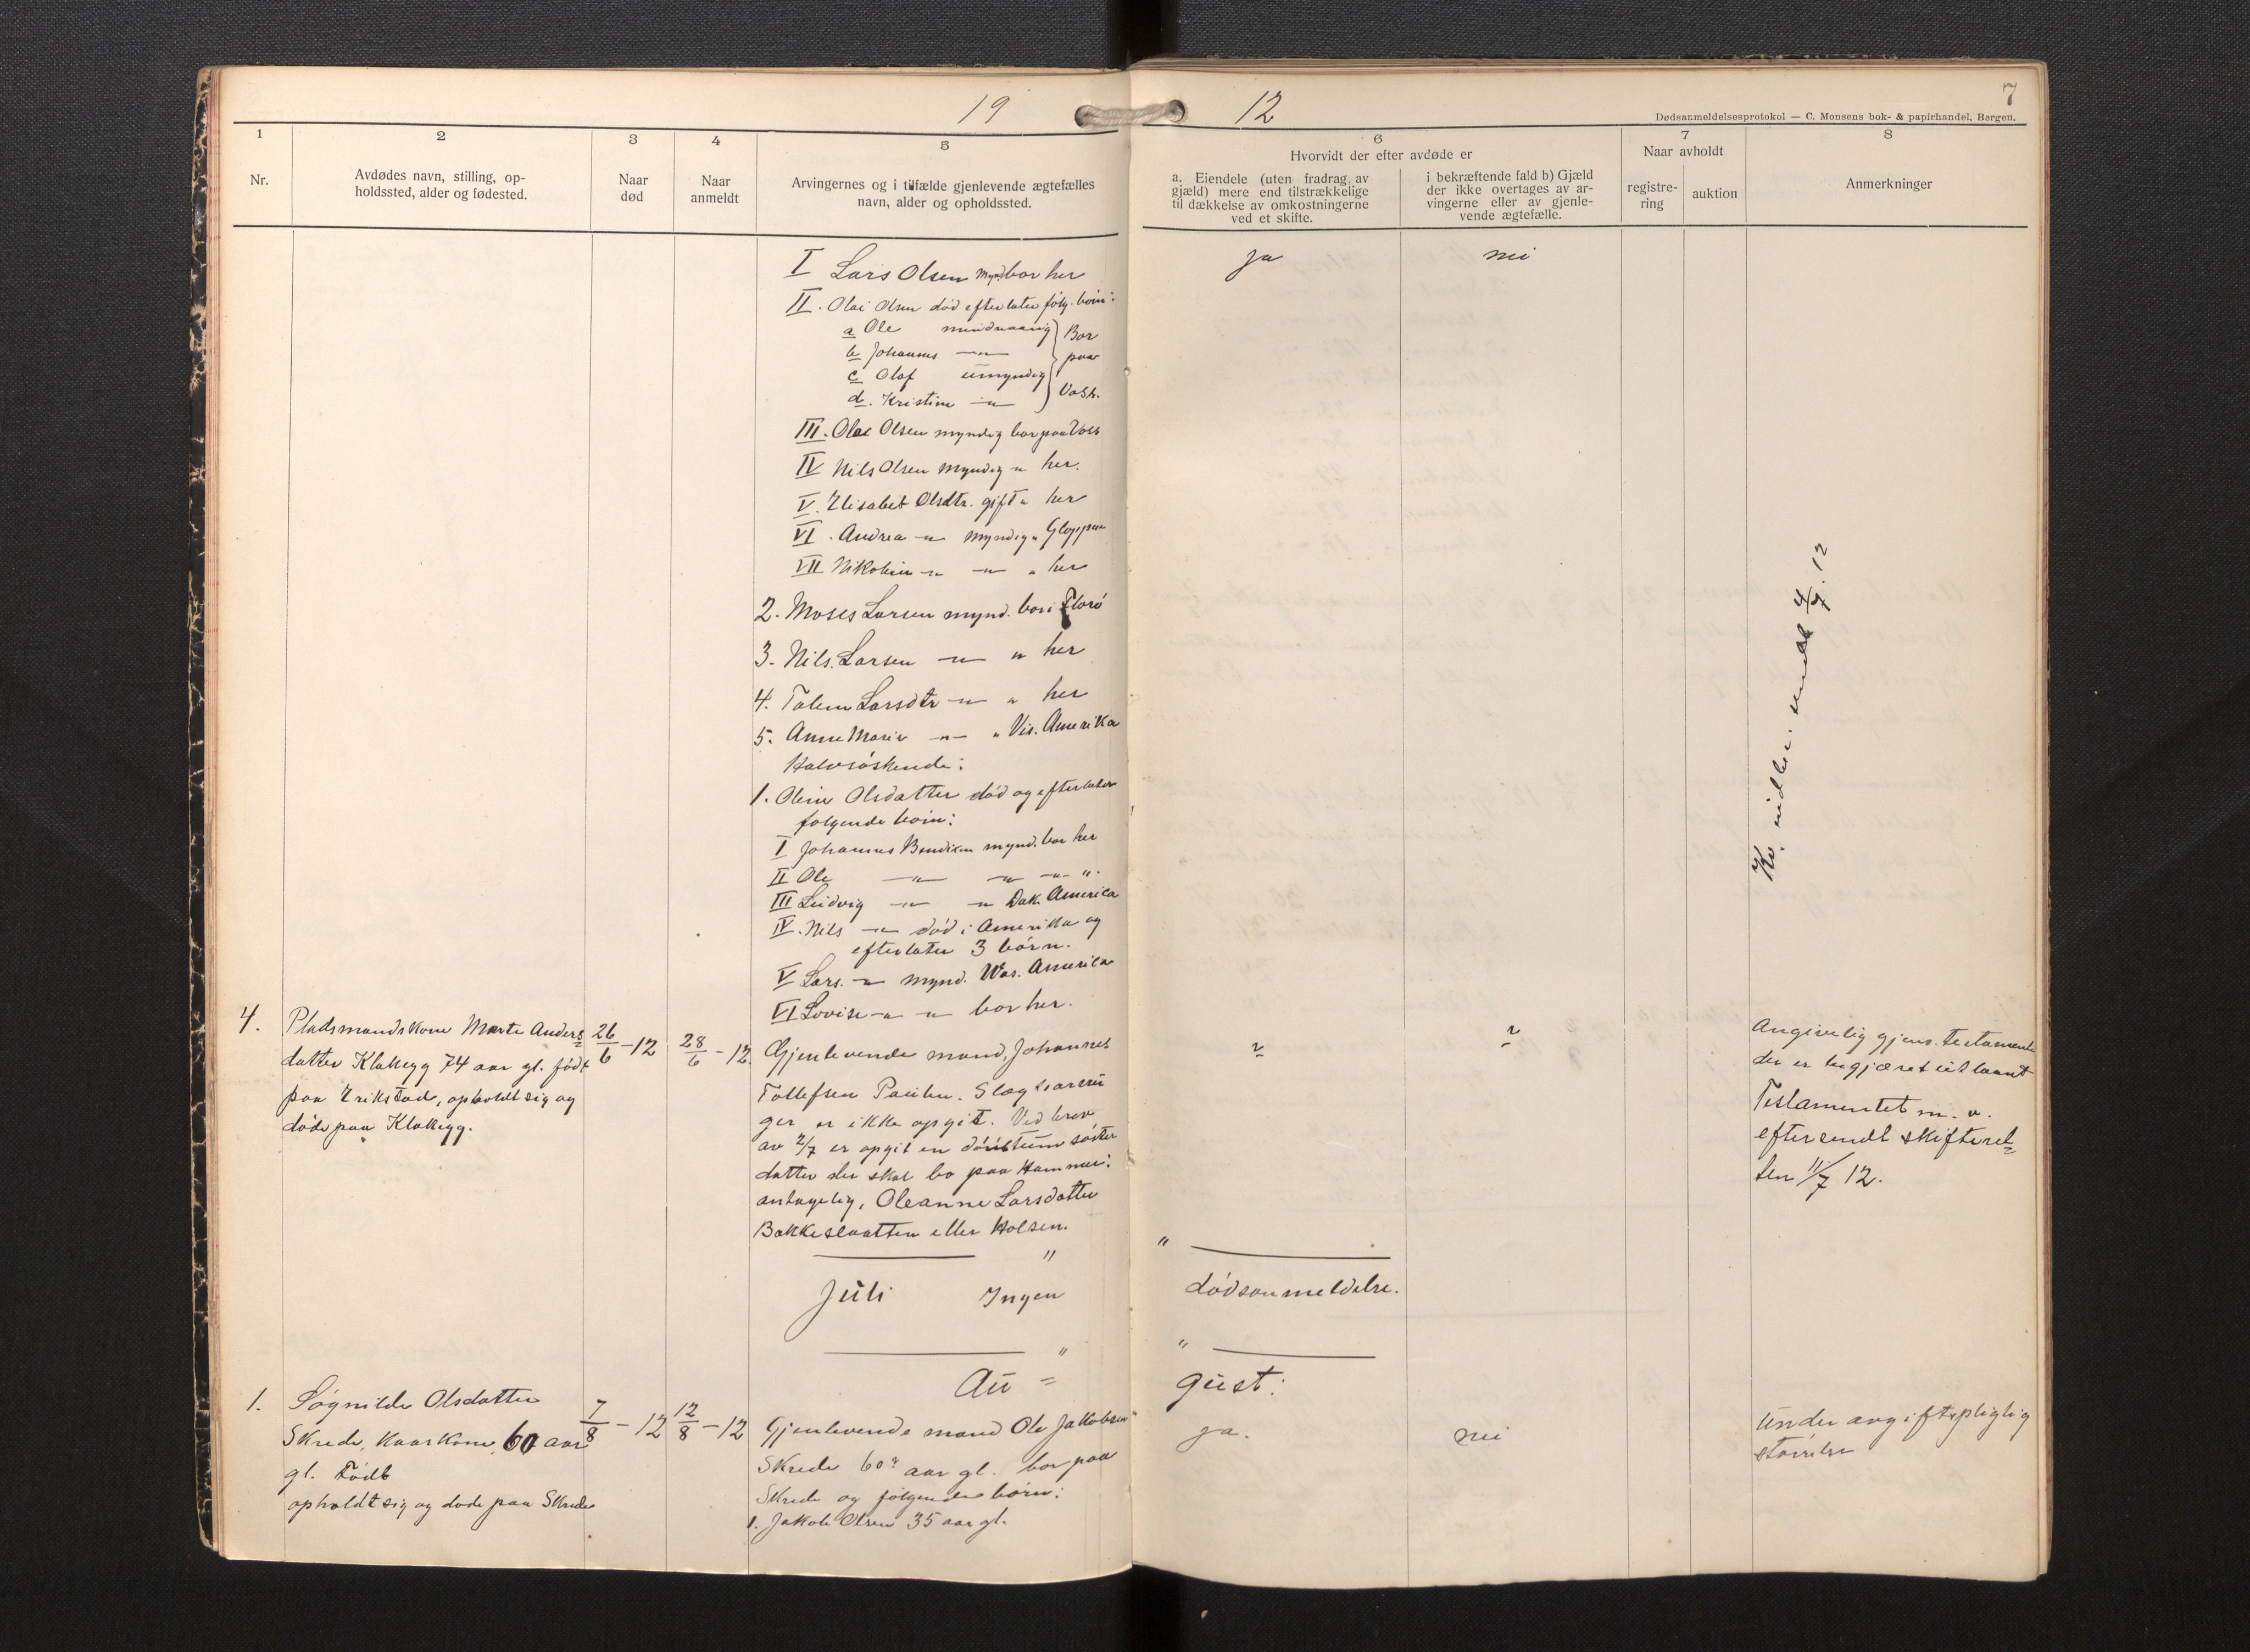 19
12
7
Dødsanmeldelsesprotokol — C. Monsens bok- & papirhandel, Bergen.
1
Nr.
2
Avdødes navn, stilling, op-
holdssted, alder og fødested.
3
Naar
død
4
Naar
anmeldt
5
Arvingernes og i tilfælde gjenlevende ægtefælles
navn, alder og opholdssted.
6
Hvorvidt der efter avdøde er
a. Eiendele (uten fradrag av
gjæld) mere end tilstrækkelige
til dækkelse av omkostningerne
ved et skifte.
i bekræftende fald b) Gjæld
der ikke overtages av ar-
vingerne eller av gjenle-
vende ægtefælle.
7
Naar avholdt
registre-
ring
auktion
8
Anmerkninger
I Lars Olsen mynd bor her
ja
nei
II. Olai Olsen død efterlater følg. børn:
a Ole mindreaarig
b Johannes —"—
c Olaf umyndig
d. Kristine —"—
Bor
paa
Voss.
III. Ole Olsen myndig bor paa Voss
IV Nils Olsen myndig " her.
V. Elisabet Olsdtr. gift " her
VI. Andrea —"— myndig " Gloppen
VII Nikoline —"— —"— " her
2. Moses Larsen mynd. bor i Florø
3. Nils Larsen —"— " her
4. Talene Larsdtr —"— " her
5. Anne Marie —"— " Vis. Amerika
Halvsøskende:
1. Oline Olsdatter død og efterlater
følgende børn:
I Johannes Bendixen mynd. bor her
II Ole —"— —"— —"— ".
III Ludvig —"— —"— Dak. America
IV. Nils —"— død i Amerika og
efterlater 3 børn.
V Lars. —"— mynd. Was. America
VI Lovise —"— —"— bor her.
sendt 4/7. 12
4.
Pladsmandskone Marte Anders=
datter Klakegg 74 aar gl. født
paa Erikstad, opholdt sig og
døde paa Klakegg.
26/6 - 12
28/6 - 12.
Gjenlevende mand, Johannes
Tollefsen Paulen. Slægtsarvin
ger er ikke opgit. Ved brev
av 2/7 er opgit en søster
datter der skal bo paa Hammer:
antagelig, Oleanne Larsdatter
Bakkeslaatten eller Holsen.
?
?
Angivelig gjens. testamente
der er begjæret utlaant
Testamentet m. v.
eftersendt skifteret=
ten 11/7 12.
"
"
Juli Ingen
dødsanmeldelse.
"
"
Au=
gust:
1.
Søgnilde Olsdatter
Skrede, kaarkone, 60 aar
gl. Født
opholdt sig og døde paa Skrede
7/8 - 12
12/8 - 12
Gjenlevende mand Ole Jakobsen
Skrede 60? aar gl. bor paa
Skrede og følgende børn:
1. Jakob Olsen 35 aar gl.
ja.
nei
Under avgiftspligtig
størrelse